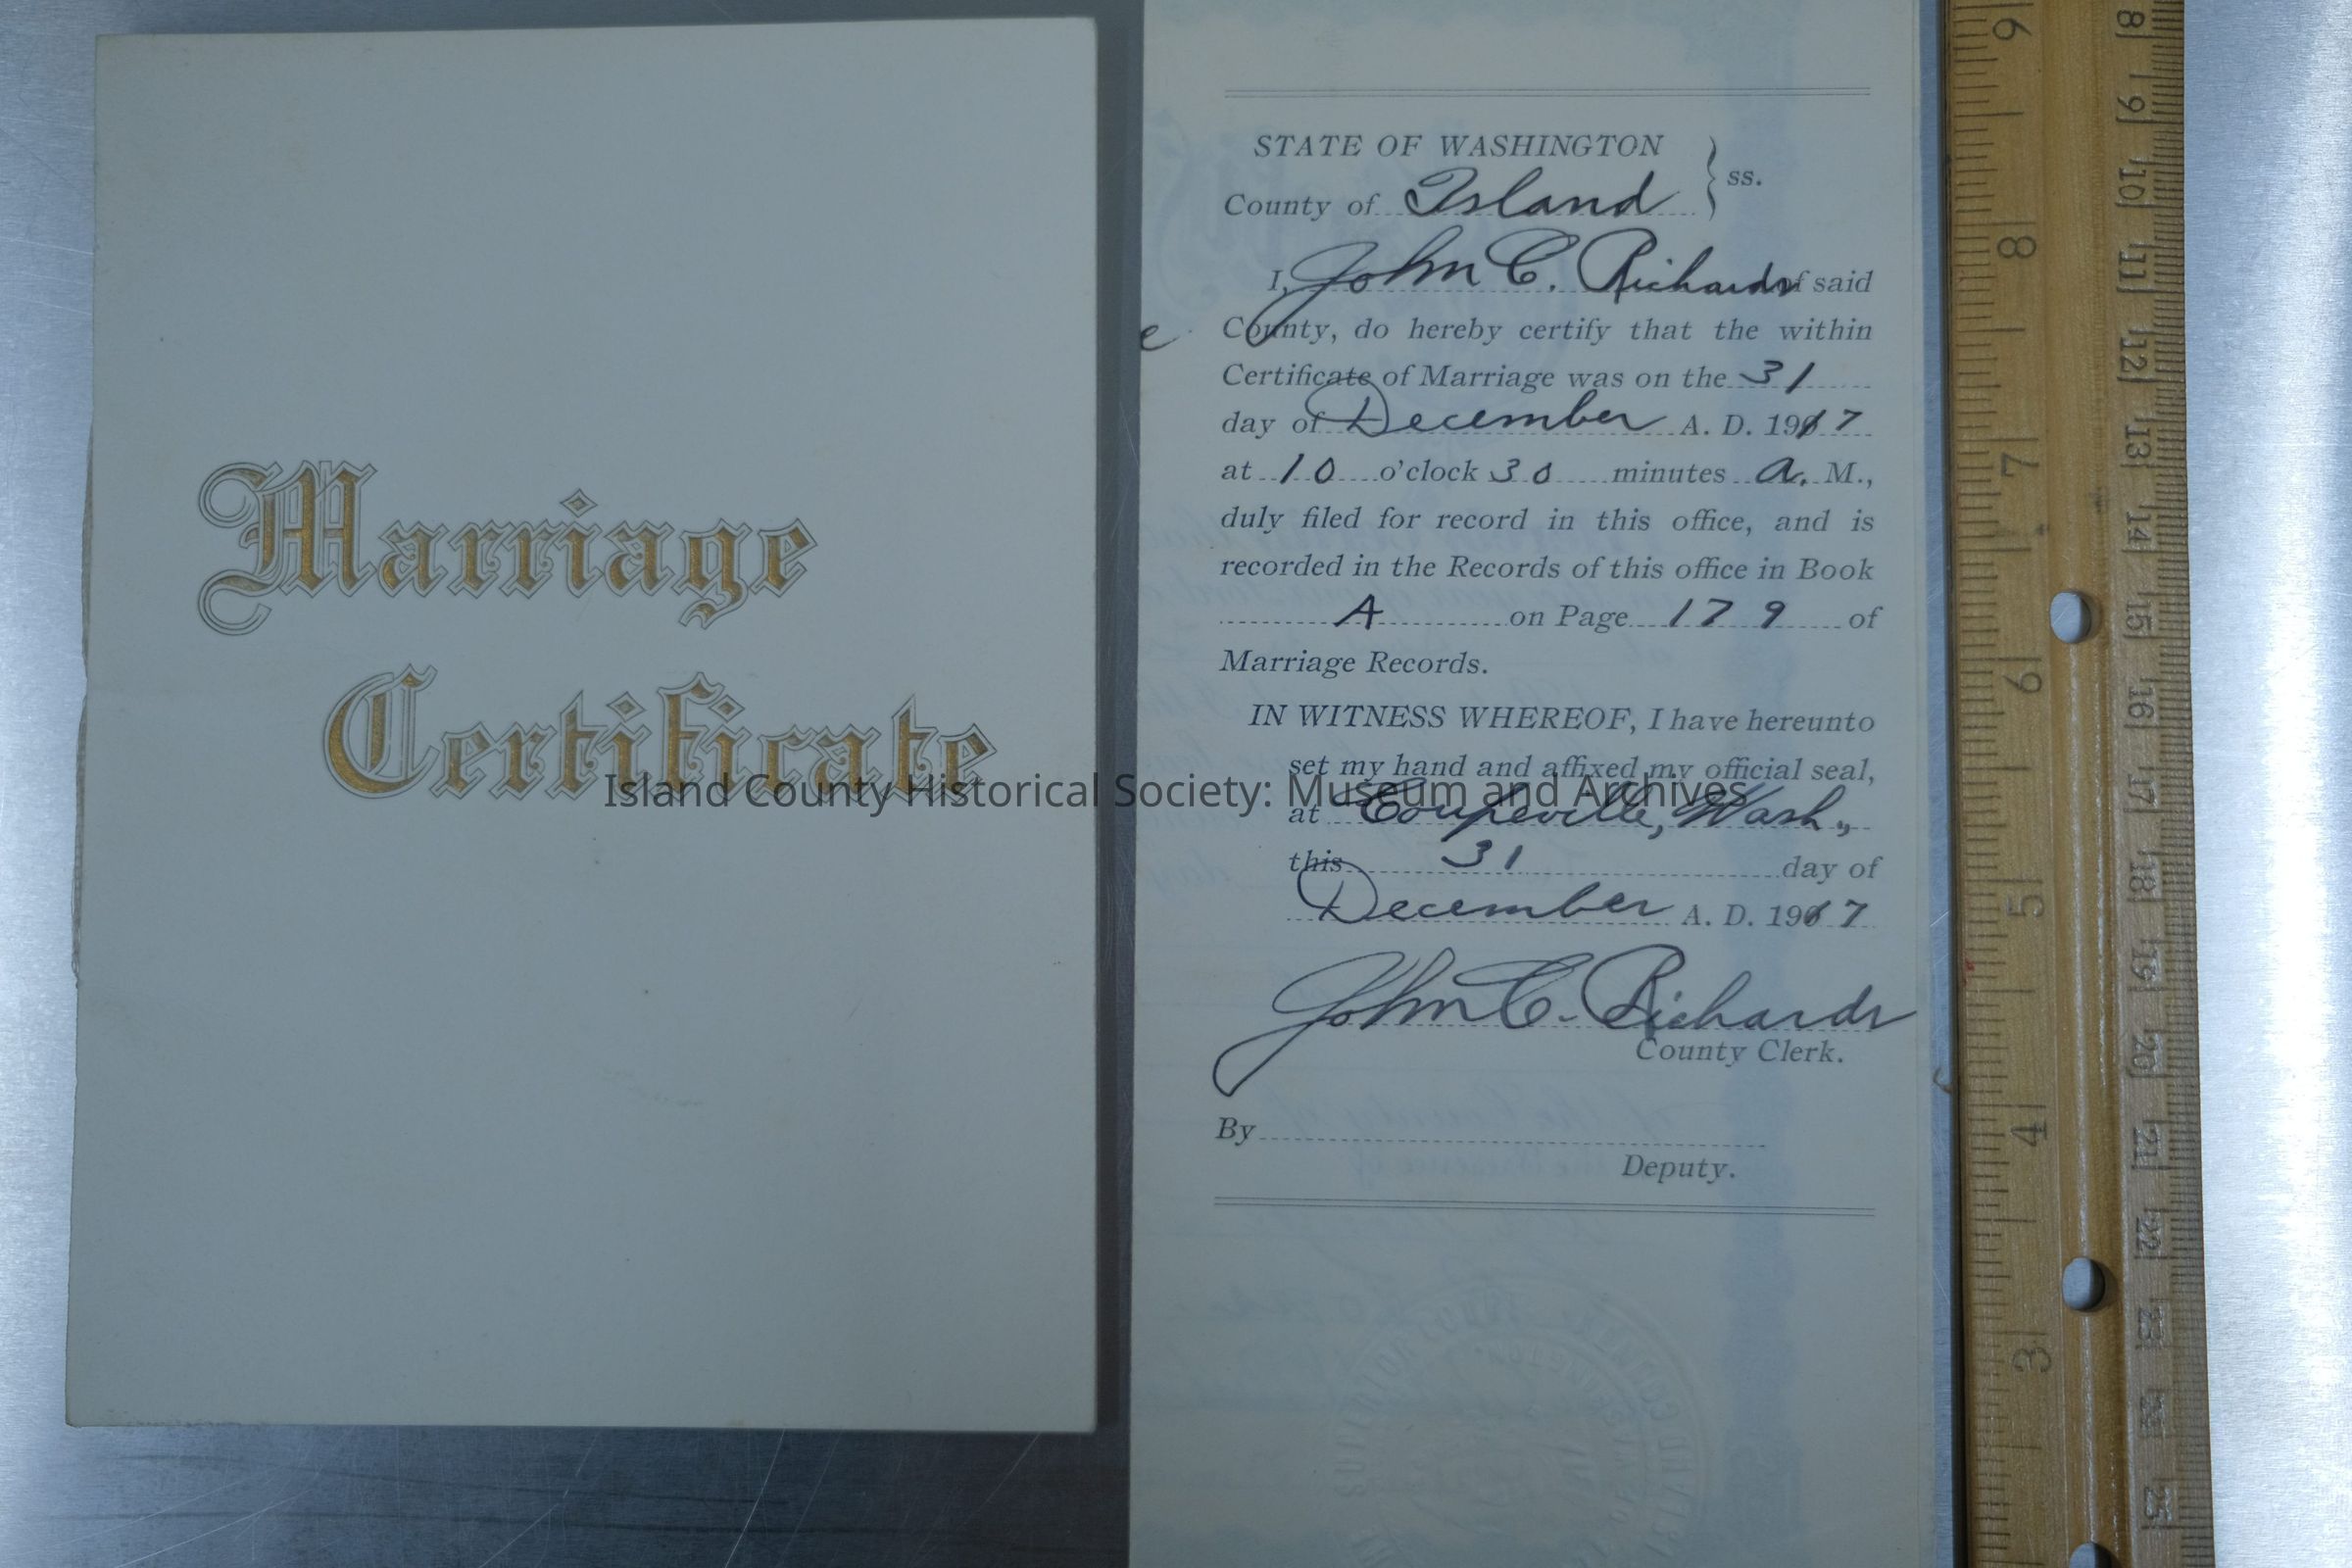 Marriage
Certificate
STATE OF WASHINGTON
County of Island } ss.
I, John C. Richards of said
County, do hereby certify that the within
Certificate of Marriage was on the 31
day of December A. D. 1917
at 10 o'clock 30 minutes a. M.,
duly filed for record in this office, and is
recorded in the Records of this office in Book
A on Page 179 of
Marriage Records.
IN WITNESS WHEREOF, I have hereunto
set my hand and affixed my official seal,
Island County Historical Society: Museum and Archives
at Coupeville, Wash.,
this 31 day of
December A. D. 1917
John C. Richards
County Clerk.
By
Deputy.
9
8
7
6
5
4
3
8
9
10
11
12
13
14
15
16
17
18
19
20
21
22
23
24
25